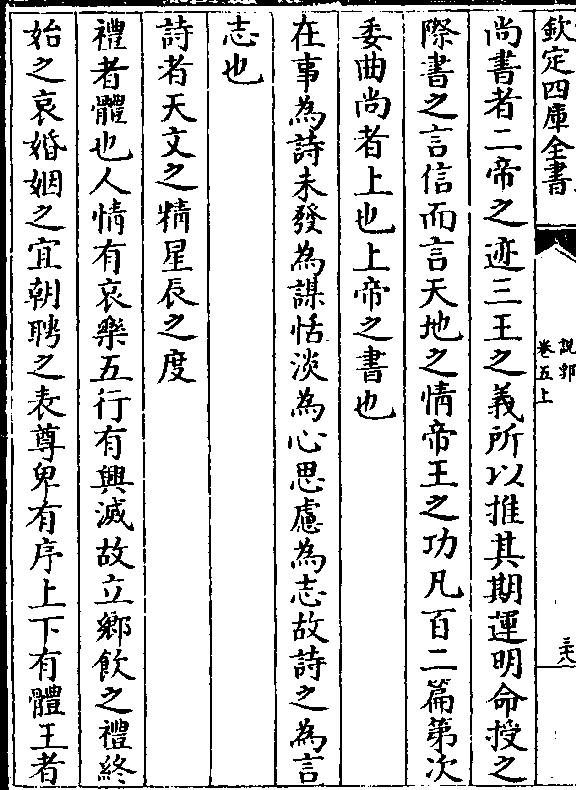 欽定四庫全書
說郛
卷五上
三六
尚書者二帝之迹三王之義所以推其期運明命授之
際書之言信而言天地之情帝王之功凡百二篇第次
委曲尚者上也上帝之書也
在事為詩未發為謀恬淡為心思慮為志故詩之為言
志也
詩者天文之精星辰之度
禮者體也人情有哀樂五行有興滅故立鄉飲之禮終
始之哀婚姻之宜朝聘之表尊卑有序上下有體王者